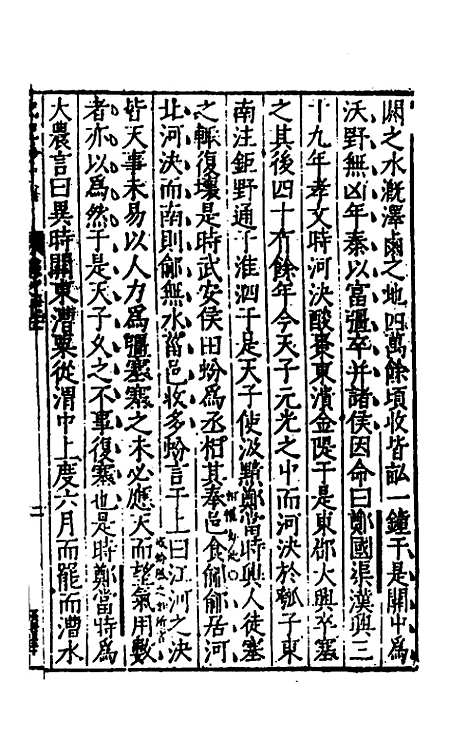 閼之水漑澤鹵之地四萬餘頃收皆畝一鍾于是關中爲
沃野無凶年秦以富彊卒并諸侯因命曰鄭國渠漢興三
十九年孝文時河決酸棗東潰金隄于是東郡大興卒塞
之其後四十有餘年今天子元光之中而河決於瓠子東
南注鉅野通于淮泗于是天子使汲黯鄭當時興人徒塞
之輒復壞是時武安侯田蚡爲丞相其奉邑食鄃鄃居河
北河決而南則鄃無水菑邑收多蚡言于上曰江河之決
皆天事未易以人力爲彊塞塞之未必應天而望氣用數
者亦以爲然于是天子久之不事復塞也是時鄭當時爲
大農言曰異時關東漕粟從渭中上度六月而罷而漕水
二